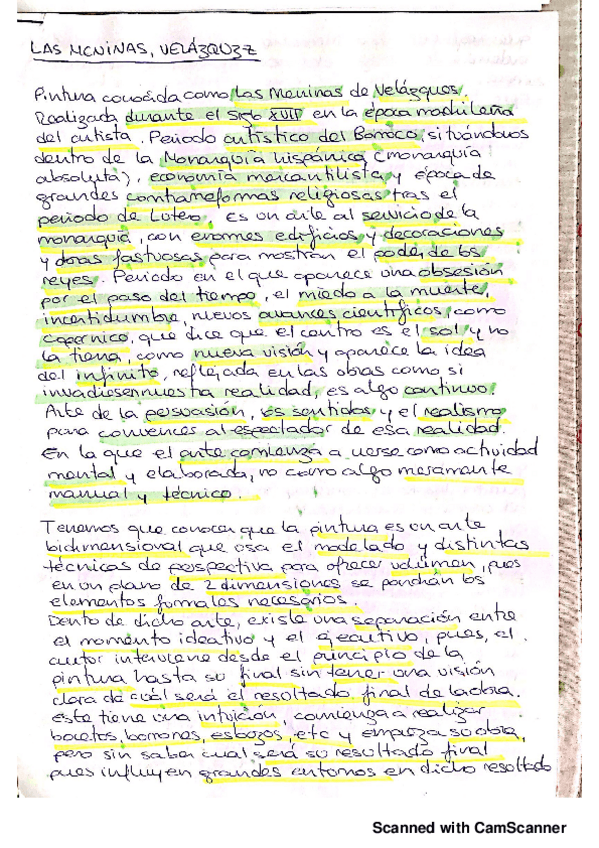 LAS MENINAS, VELÁZQUEZ
Pintura conocida como Las Meninas de Velázques.
Realizada durante el siglo XVII en la época madrileña
del artista. Periodo artístico del Barroco, situándonos
dentro de la Monarquía hispánica (monarquía
absoluta), economía mercantilista y época de
grandes contrarreformas religiosas tras el
periodo de Lutero, es un arte al servicio de la
monarquía, con enormes edificios y decoraciones
y obras fastuosas para mostrar el poder de los
reyes. Periodo en el que aparece una obsesión
por el paso del tiempo, el miedo a la muerte,
incertidumbre, nuevos avances científicos, como
Copérnico, que dice que el centro es el sol y no
la tierra, como nueva visión y aparece la idea
del infinito, reflejada en las obras como si
invadiesen nuestra realidad, es algo continuo.
Arte de la persuasión, los sentidos y el realismo
para convencer al espectador de esa realidad.
En la que el arte comienza a verse como actividad
mental y elaborada, no como algo meramente
manual y técnico.
Tenemos que conocer que la pintura es un arte
bidimensional que usa el modelado y distintas
técnicas de perspectiva para ofrecer volumen, pues
en un plano de 2 dimensiones se pondrán los
elementos formales necesarios.
Dento de dicho arte, existe una separación entre
el momento ideativo y el ejecutivo, pues, el
autor interviene desde el principio de la
pintura hasta su final sin tener una visión
clara de cuál será el resultado final de la obra.
Este tiene una intuición, comienza a realizar
bocetos, borrones, esbozos, etc y empieza su obra,
pero sin saber cual será su resultado final
pues influyen grandes entornos en dicho resultado
Scanned with CamScanner